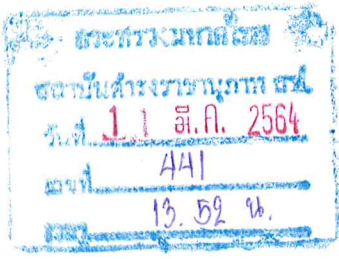 กระทรวงมหาดไทย
สถาบันดำรงราชานุภาพ สป.
วันที่ 11 มี.ค. 2564
เลขที่ 441
เวลา 13.52 น.